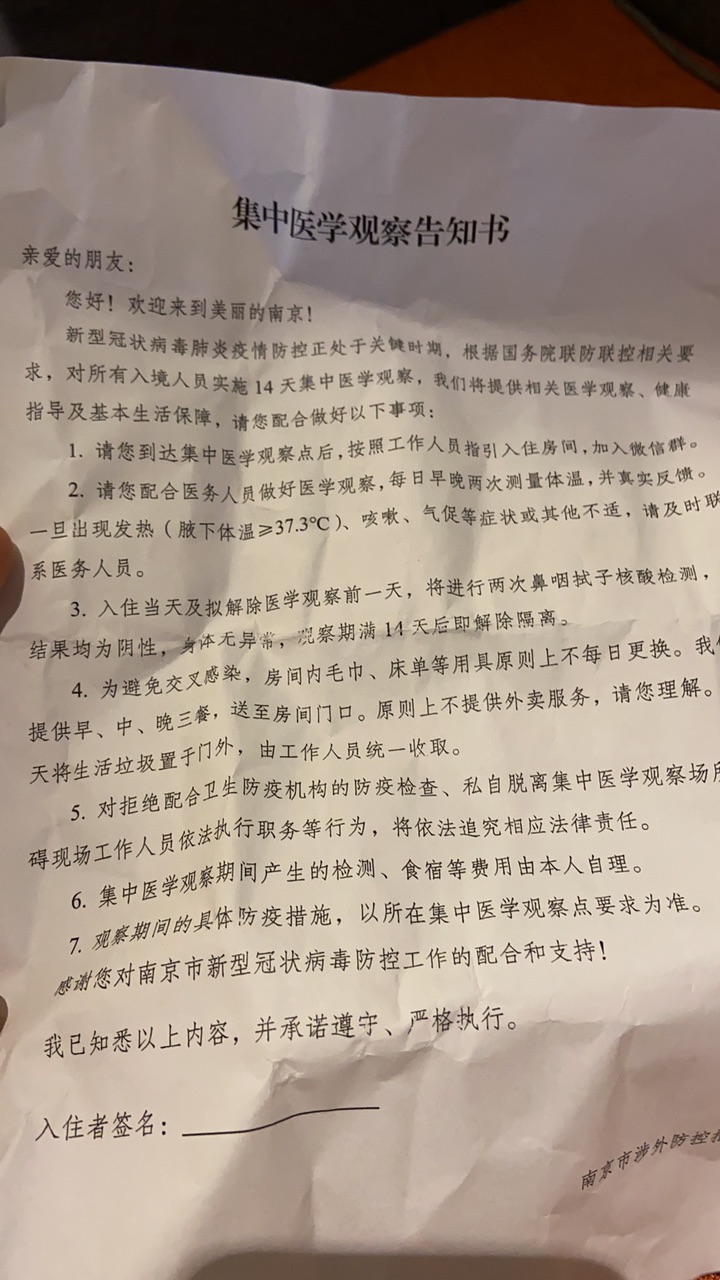 集中医学观察告知书
亲爱的朋友：
您好！欢迎来到美丽的南京！
新型冠状病毒肺炎疫情防控正处于关键时期，根据国务院联防联控相关要
求，对所有入境人员实施14天集中医学观察，我们将提供相关医学观察、健康
指导及基本生活保障，请您配合做好以下事项：
1. 请您到达集中医学观察点后，按照工作人员指引入住房间，加入微信群。
2. 请您配合医务人员做好医学观察，每日早晚两次测量体温，并真实反馈。
一旦出现发热（腋下体温≥37.3℃）、咳嗽、气促等症状或其他不适，请及时联
系医务人员。
3. 入住当天及拟解除医学观察前一天，将进行两次鼻咽拭子核酸检测，
结果均为阴性，身体无异常，观察期满14天后即解除隔离。
4. 为避免交叉感染，房间内毛巾、床单等用具原则上不每日更换。我
提供早、中、晚三餐，送至房间门口。原则上不提供外卖服务，请您理解。
天将生活垃圾置于门外，由工作人员统一收取。
5. 对拒绝配合卫生防疫机构的防疫检查、私自脱离集中医学观察场所
碍现场工作人员依法执行职务等行为，将依法追究相应法律责任。
6. 集中医学观察期间产生的检测、食宿等费用由本人自理。
7. 观察期间的具体防疫措施，以所在集中医学观察点要求为准。
感谢您对南京市新型冠状病毒防控工作的配合和支持！
我已知悉以上内容，并承诺遵守、严格执行。
入住者签名：
南京市涉外防控